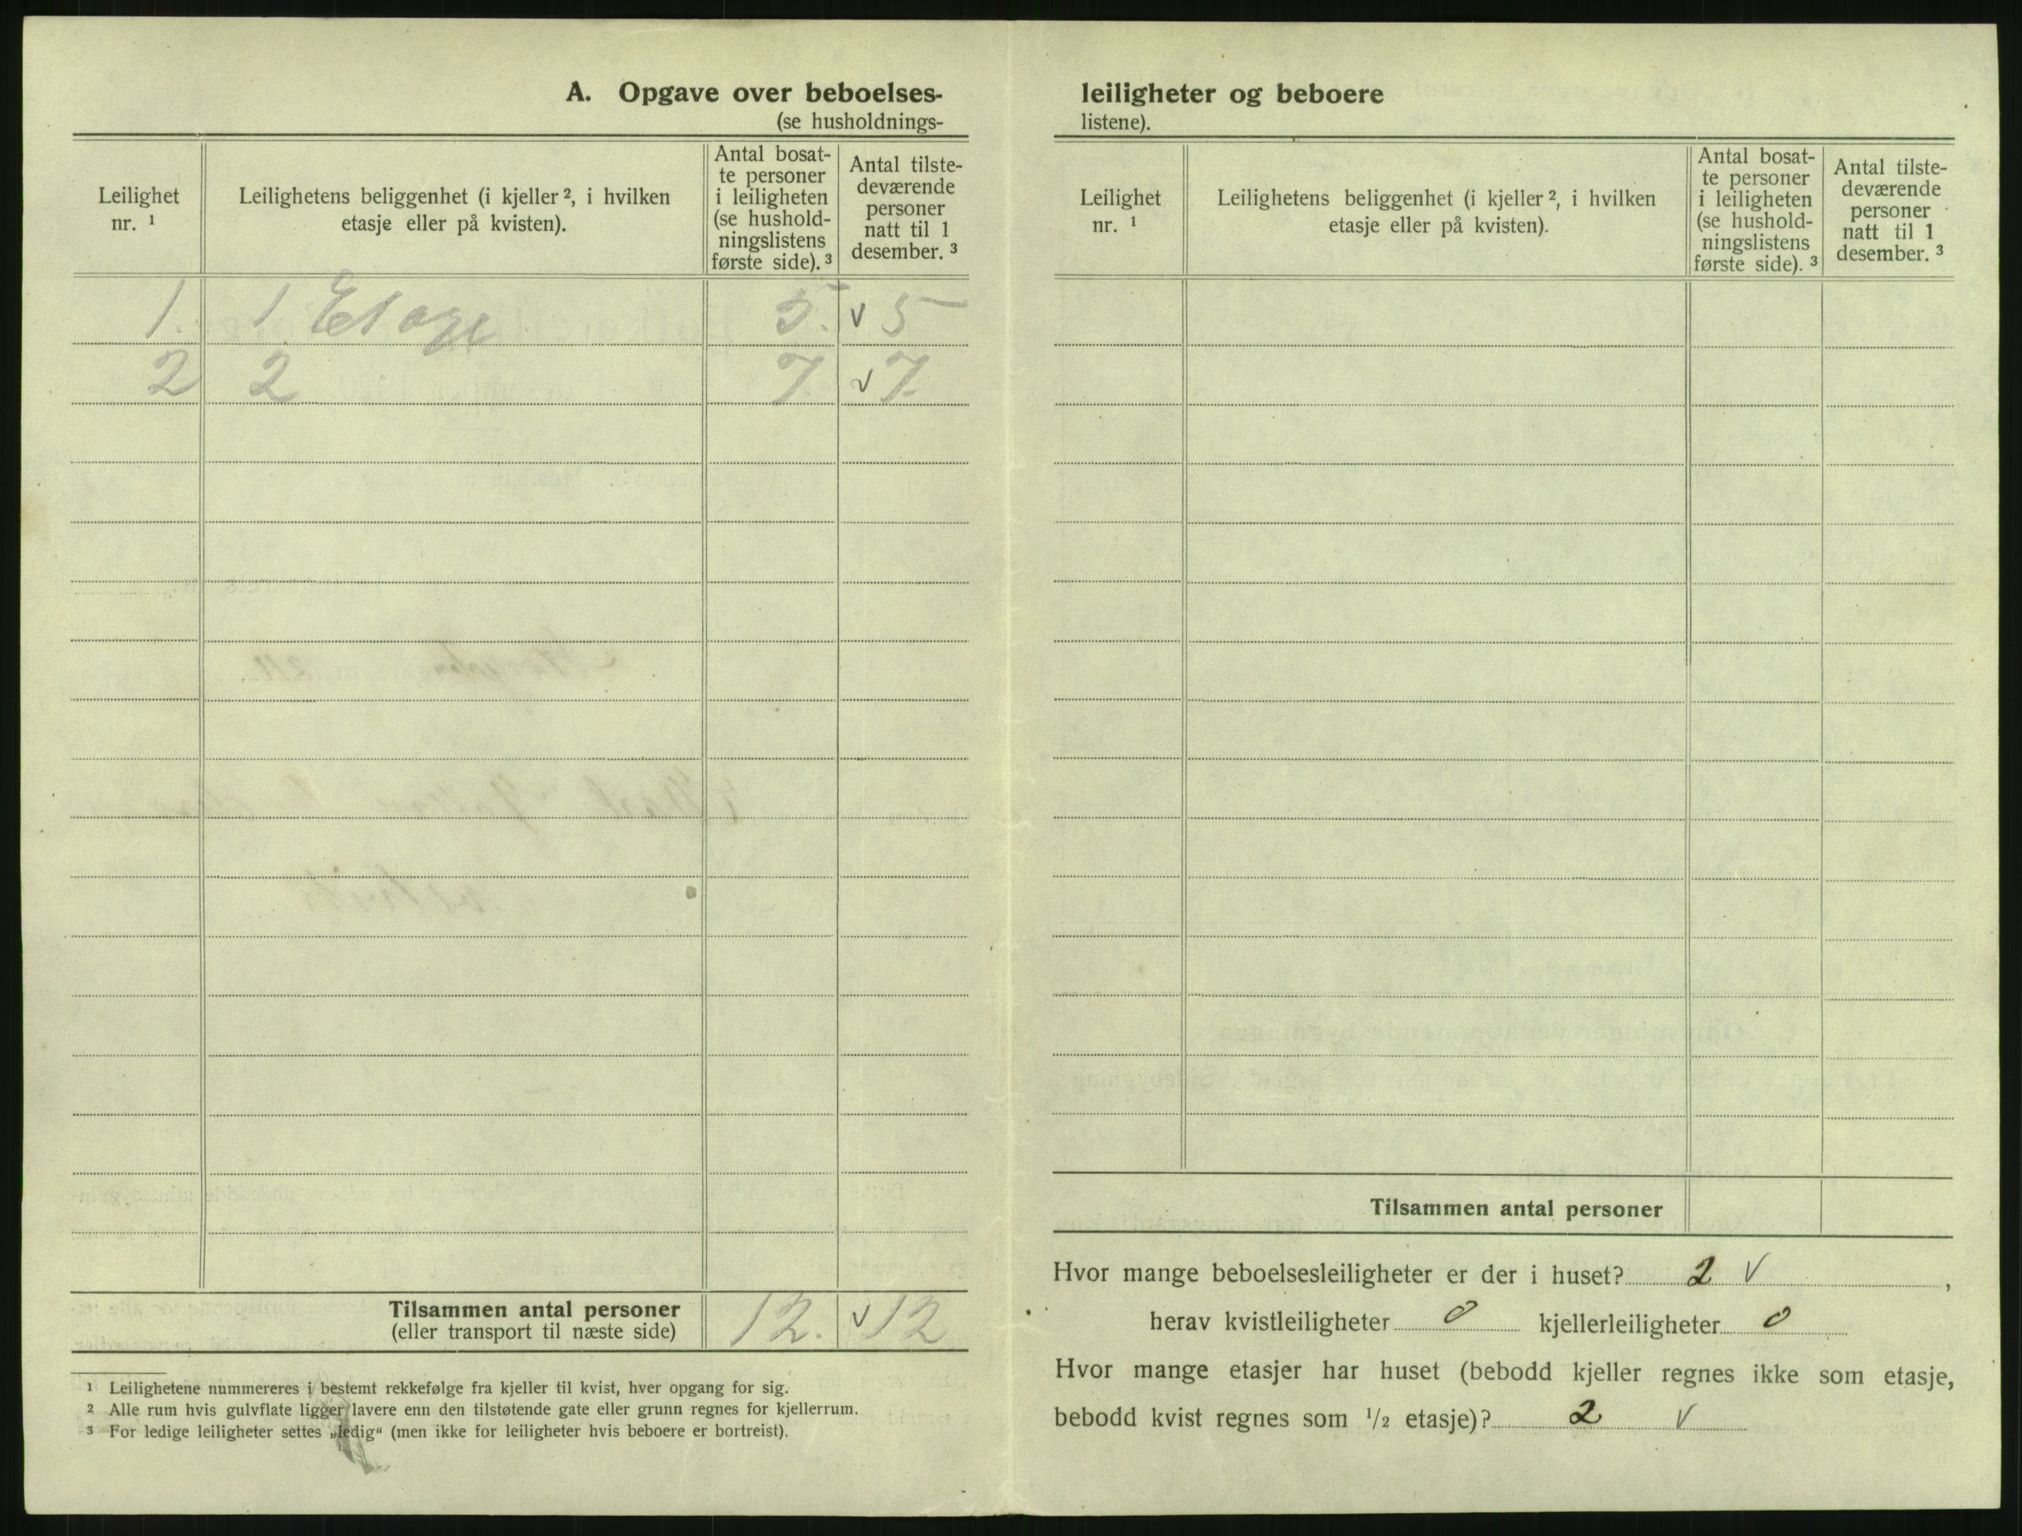 A. Opgave over beboelses-
(se husholdnings-
Leilighet nr. ¹
Leilighetens beliggenhet (i kjeller ², i hvilken etasje eller på kvisten).
Antal bosat-te personer i leiligheten (se hushold-ningslistens første side). ³
Antal tilste-deværende personer natt til 1 desember. ³
1. 1 Etage 5. v 5
2 2 7. v 7.
Tilsammen antal personer
(eller transport til næste side) 12. v 12
¹ Leilighetene nummereres i bestemt rekkefølge fra kjeller til kvist, hver opgang for sig.
² Alle rum hvis gulvflate ligger lavere enn den tilstøtende gate eller grunn regnes for kjellerrum.
³ For ledige leiligheter settes „ledig“ (men ikke for leiligheter hvis beboere er bortreist).
leiligheter og beboere
listene).
Leilighet nr. ¹
Leilighetens beliggenhet (i kjeller ², i hvilken etasje eller på kvisten).
Antal bosat-te personer i leiligheten (se hushold-ningslistens første side). ³
Antal tilste-deværende personer natt til 1 desember. ³
Tilsammen antal personer
Hvor mange beboelsesleiligheter er der i huset? 2 v ,
herav kvistleiligheter 0 kjellerleiligheter 0
Hvor mange etasjer har huset (bebodd kjeller regnes ikke som etasje,
bebodd kvist regnes som ¹/₂ etasje)? 2 v